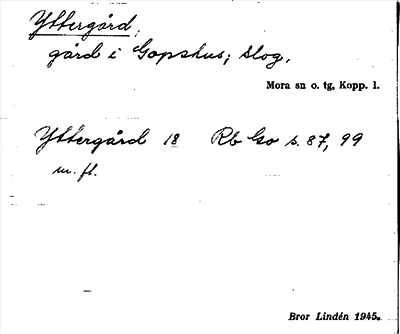 Yttergård,
gård i Gopshus; slog.
Mora sn o. tg, Kopp. l.
Yttergård 18 Rb Go s. 87, 99
m. fl.
Bror Lindén 1945.